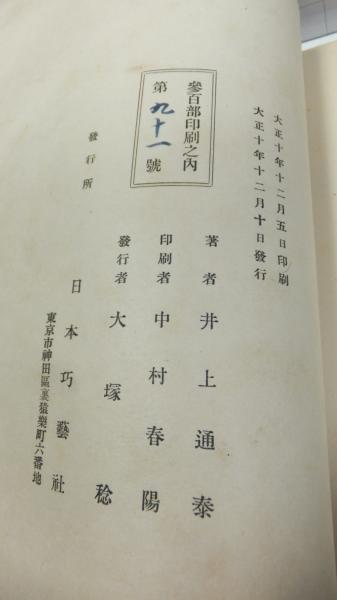 大正十年十二月五日印刷
大正十年十二月十日發行
參百部印刷之內
第九十一號
著者 井上通泰
印刷者 中村春陽
發行者 大塚稔
發行所
日本巧藝社
東京市神田區裏猿樂町六番地